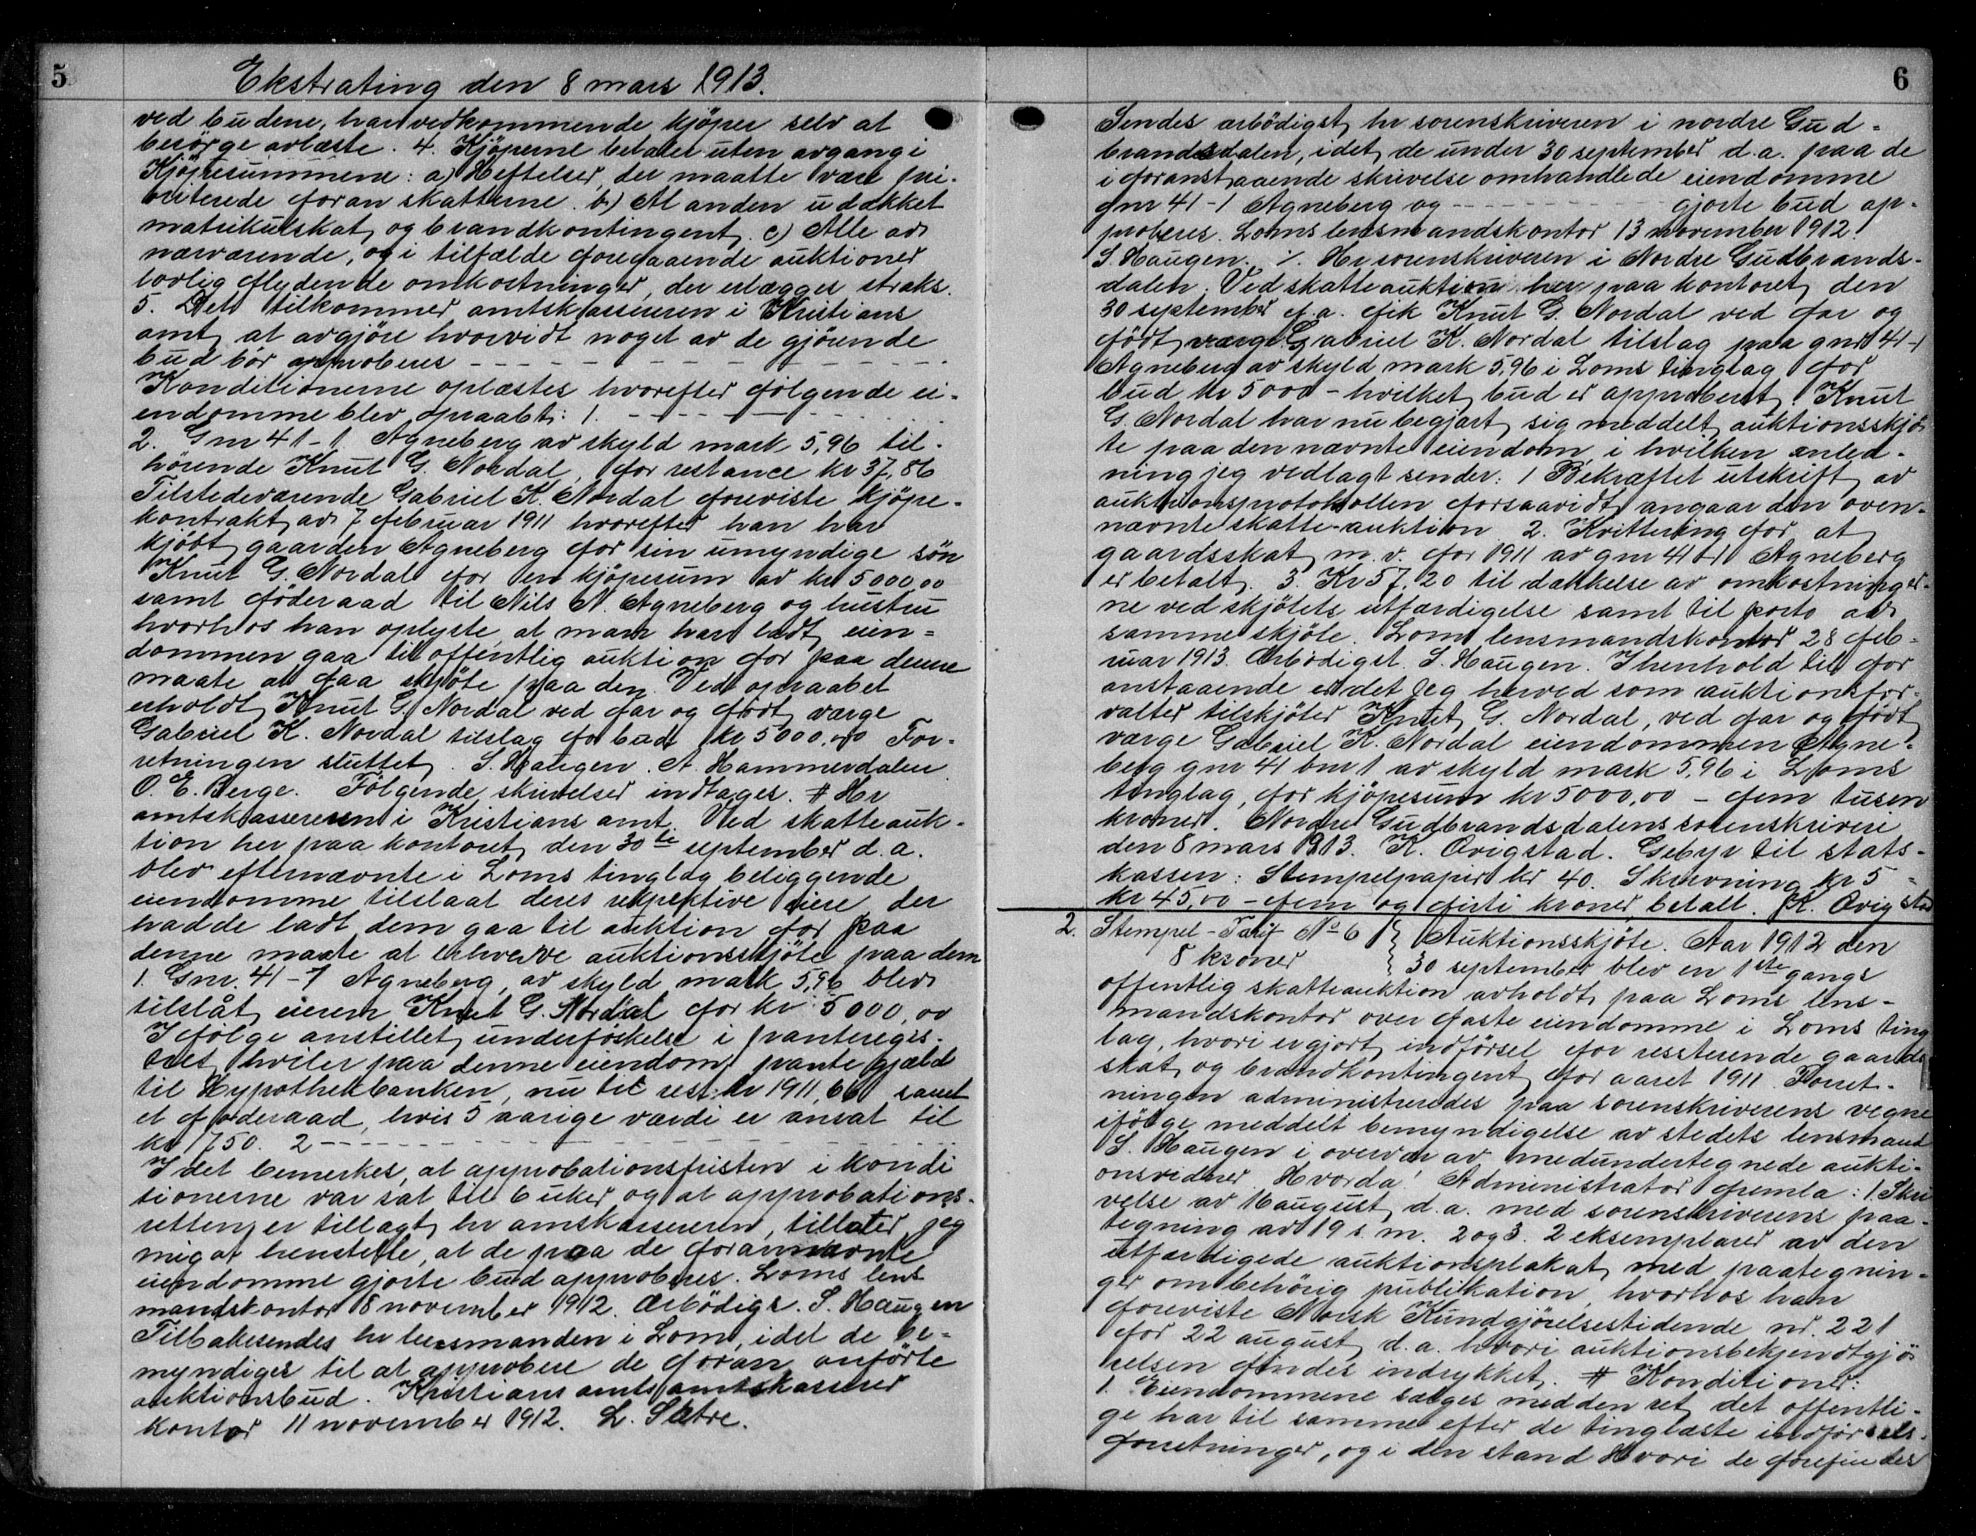 5
Ekstrating den 8 mars 1913.
ved budene, har vedkommende kjöper selv at
besörge avlæste. 4. Kjöperne betaler uten avgang i
Kjöpesummene: a) Heftelser, der maatte være pri-
oriterede foran skatterne. b) Al anden udækket
matrikulskat og brandkontingent. c) Alle av
nærværende, og i tilfælde foregaaende auktioner
lovlig flydende omkostninger, der erlægges straks.
5. Det tilkommer amtskassereren i Kristians
amt at avgjöre hvorvidt noget av de gjörende
bud bör approberes - - - - - - - -
Konditionerne oplæstes hvorefter fölgende ei-
endomme blev opraabt: 1. - - - - - - -
2. Gnr 41-1 Agneberg av skyld mark 5,96 til-
hörende Knut G. Nordal, for restance kr 37,86
Tilstedeværende Gabriel K. Nordal foreviste kjöpe-
kontrakt av 7 februar 1911 hvorefter han har
kjöbt gaarden Agneberg for sin umyndige sön
Knut G. Nordal for en kjöpesum av kr 5000,00
samt föderaad til Nils N. Agneberg og hustru
hvorhos han oplyste at man har ladt eien-
dommen gaa til offentlig auktion for paa denne
maate at faa skjöte paa den. Ved opraabet
erholdt Knut G. Nordal ved far og födt værge
Gabriel K. Nordal tilslag for bud kr 5000,00 For-
retningen sluttet. S. Haugen. A. Hammerdalen.
O. E. Berge. Fölgende skrivelser indtages. # Hr
amtskassereren i Kristians amt. Ved skatteauk-
tion her paa kontoret den 30te september d.a.
blev efternævnte i Loms tinglag beliggende
eiendomme tilslaat deres respektive eiere, der
hadde ladt dem gaa til auktion for paa
denne maate at erhverve auktionsskjöter paa dem
1. Gnr. 41-1 Agneberg, av skyld mark 5,96 blev
tilslåt eieren Knut G. Nordal for kr 5000,00
Ifölge anstillet undersökelse i panteregis-
tret hviler paa denne eiendom pantegjæld
til Hypothekbanken, nu til rest kr 1911,66 samt
et föderaad, hvis 5 aarige værdi er ansat til
kr 1750. 2 - - - - - - - - - -
Idet bemerkes, at approbationsfristen i kondi
tionerne var sat til 6 uker og at approbations-
retten er tillagt hr amtskassereren, tillater jeg
mig at henstille, at de paa de forannævnte
eiendomme gjorte bud approberes. Loms lens
mandskontor 8 november 1912. Ærbödigs. S. Haugen
Tilbakesendes hr lensmanden i Lom, idet de be-
myndiges til at approbere de foran anförte
auktionsbud. Kristians amts amtskasserer
kontor 11 november 1912. L. Sætre.
6
Sendes ærbödigst hr sorenskriveren i nordre Gud-
brandsdalen, idet de under 30 september d.a. paa de
i foranstaaende skrivelse omhandlede eiendomme
gnr 41-1 Agneberg og - - - - - - - gjorte bud ap-
proberes. Loms lensmandskontor 13 november 1912.
S. Haugen. ./. Hr sorenskriveren i Nordre Gudbrands-
dalen. Ved skatteauktion her paa kontoret den
30 september f.a. fik Knut G. Nordal ved far og
födt værge Gabriel K. Nordal tilslag paa gnr 41-1
Agneberg av skyld mark 5,96 i Loms tinglag for
bud kr 5000 - hvilket bud er approbert. Knut
G. Nordal har nu begjært sig meddelt auktionsskjö-
te paa den nævnte eiendom i hvilken anled-
ning jeg vedlagt sender: 1 Bekræftet utskrift av
auktionsprotokollen forsaavidt angaar den oven-
nævnte skatte-auktion 2. Kvittering for at
gaardsskat m.v. for 1911 av gnr 41-1 Agneberg
er betalt. 3. Kr 57,20 til dækkelse av omkostninger-
ne ved skjötets utfærdigelse samt til porto av
samme skjöte. Loms lensmandskontor 28 feb-
ruar 1913. Ærbödigst. S. Haugen. I henhold til for
anstaaende er det jeg herved som auktionsfor-
valter tilskjöter Knut G. Nordal, ved far og födt
værge Gabriel K. Nordal eiendommen Agne-
berg gnr 41 bnr 1 av skyld mark 5,96 i Loms
tinglag, for kjöpesum kr 5000,00 - fem tusen
kroner. Nordre Gudbrandsdalens sorenskriveri
den 8 mars 1913. K. Qvigstad. Gebyr til stats-
kassen: Stempelpapir kr 40. Skrivning kr 5 -
kr 45,00 - fem og firti kroner, betalt. K. Qvigstad
2. Stempel-Tarif No 6 } Auktionsskjöte. Aar 1912 den
8 kroner } 30 september blev en 1ste gangs
offentlig skatteauktion avholdt paa Loms lens-
mandskontor over faste eiendomme i Loms ting
lag, hvori er gjort indförsel for resterende gaards
skat og brandkontingent for aaret 1911. Forret-
ningen administreredes paa sorenskriverens vegne
ifölge meddelt bemyndigelse av stedets lensmand
S. Haugen i overvær av medundertegnede aukti-
onsvidner. Hvorda: Administrator fremla: 1. Skri
velse av 16 august d.a. med sorenskriverens paa-
tegning av 19 s.m. 2 og 3. 2 eksemplarer av den
utfærdigede auktionsplakat med paategnin-
ger om behörig publikation, hvorhos han
foreviste Norsk Kundgjörelsestidende nr. 221
for 22 august d.a. hvori auktionsbekjendtgjö-
relsen findes indrykket. # Konditioner:
1. Eiendommene sælges med den ret det offentli-
ge har til samme efter de tinglæste indförsels-
forretninger, og i den stand hvori de forefindes